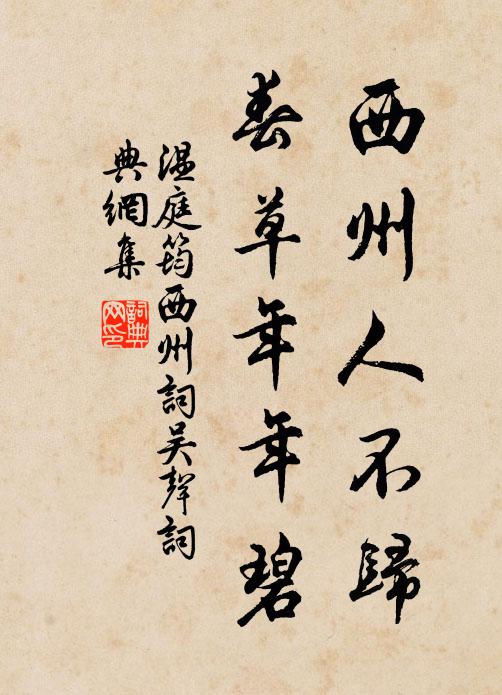 西州人不歸
春草年年碧
温庭筠西州詞吴聲詞
典網集
詞典
网印